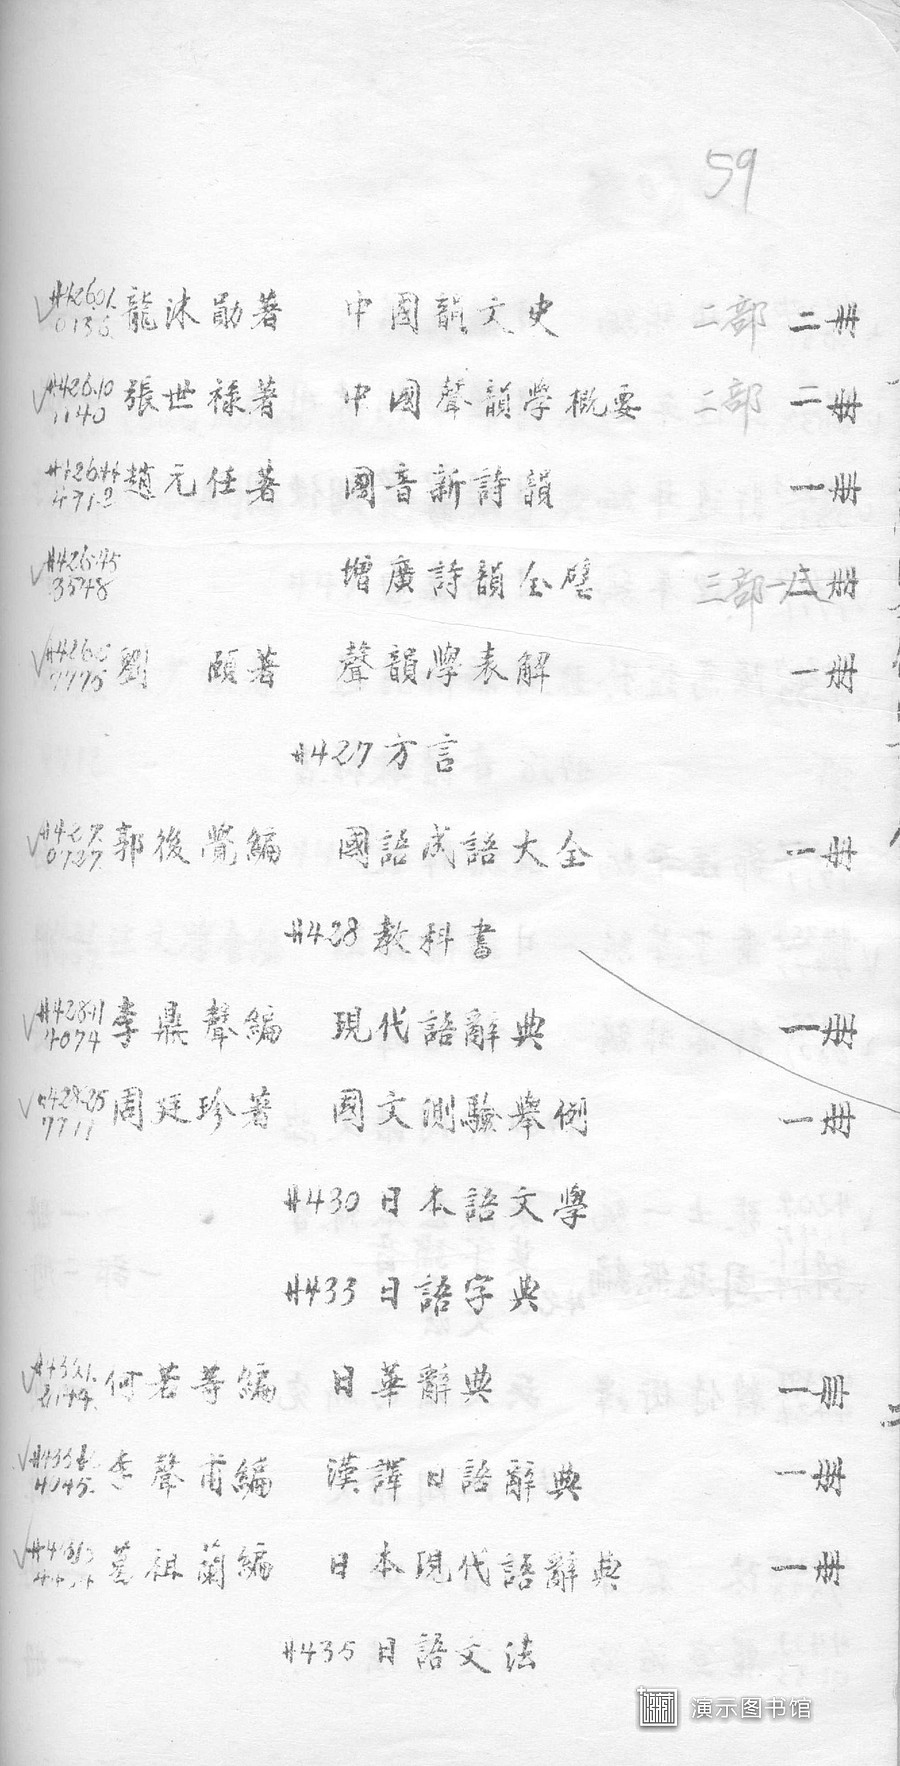 59
√ A426.01 0136 龍沐勛著 中國韻文史 二部 二册
√ A426.10 1140 張世祿著 中國聲韻學概要 二部 二册
A426.44 471.2 趙元任著 國音新詩韻 一册
√ A426.45 3548 增廣詩韻全璧 三部 册
√ 7775 劉 頤著 聲韻學表解 一册
A427 方言
√ A427 0727 郭後覺編 國語成語大全 一册
A428 教科書
√ A428.11 4074 李鼎聲編 現代語辭典 一册
√ 428.25 7711 周廷珍著 國文測驗舉例 一册
A430 日本語文學
A433 日語字典
√ 何若等編 日華辭典 一册
√ 4045 李聲甫編 漢譯日語辭典 一册
√ 葛祖蘭編 日本現代語辭典 一册
A435 日語文法
演示图书馆